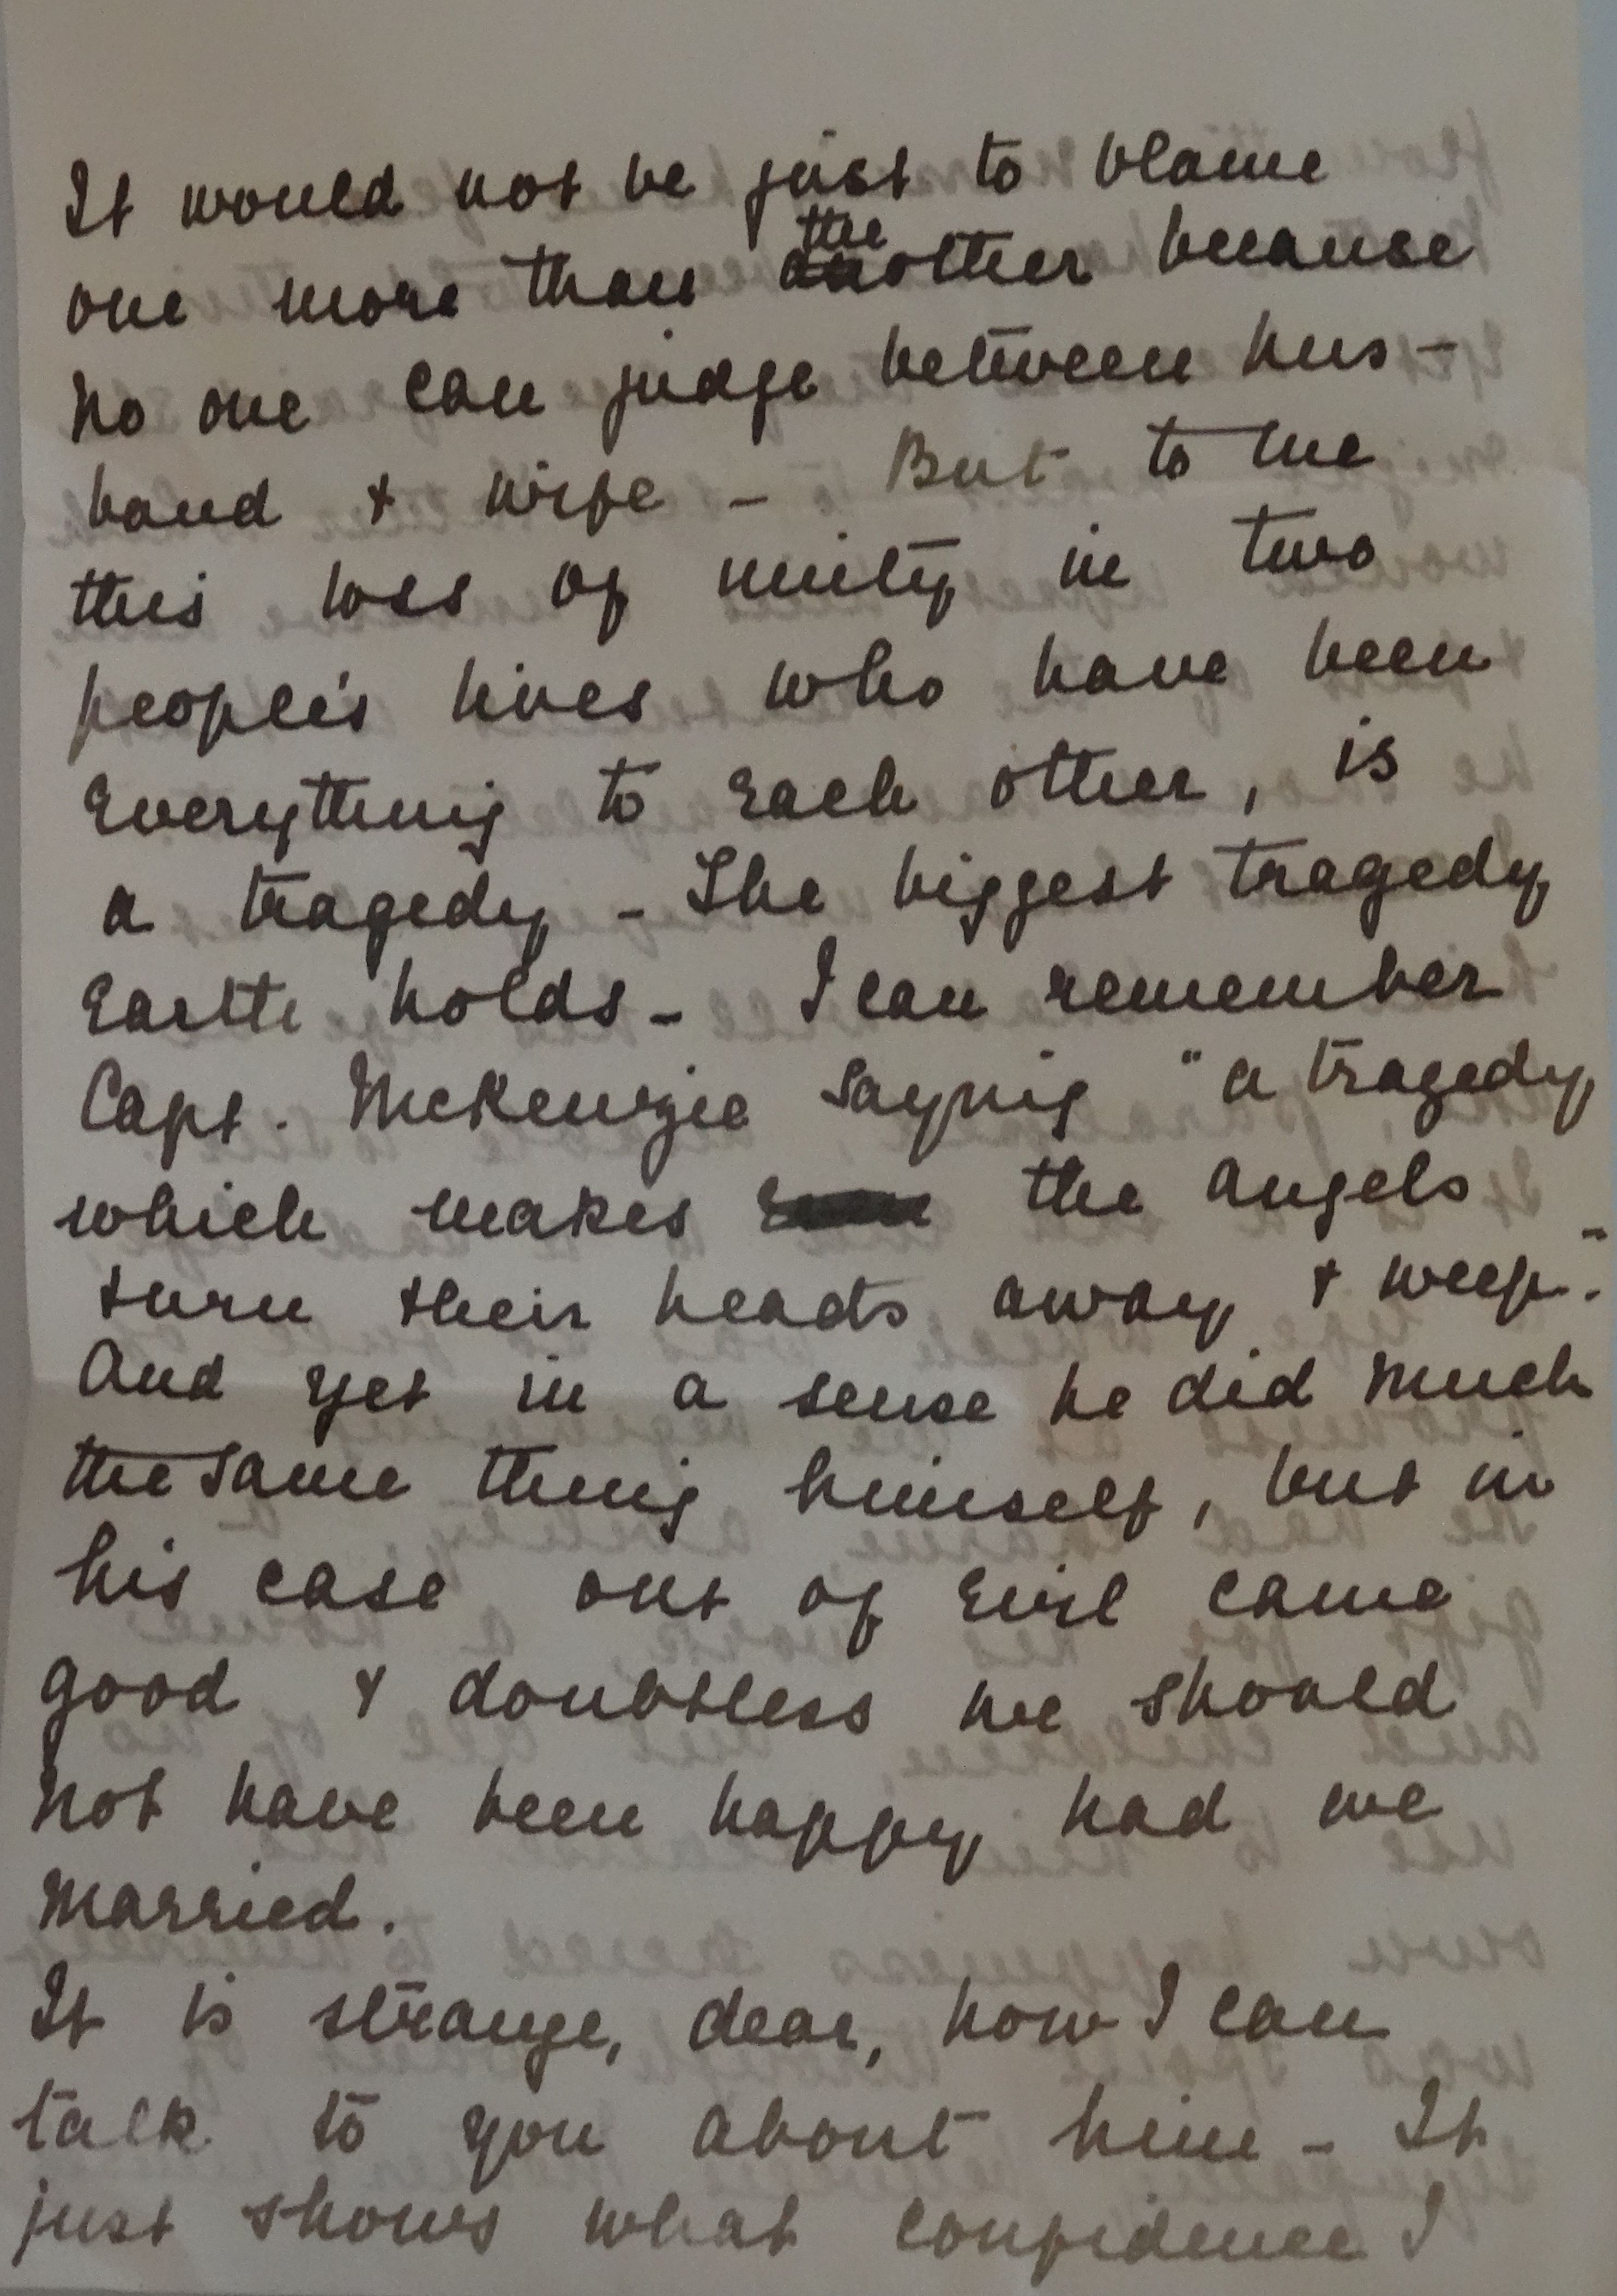 It would not be just to blame
one more than the other because
no one can judge between hus-
band & wife - But to me
this loss of unity in two
people's lives who have been
everything to each other, is
a tragedy - The biggest tragedy
Earth holds - I can remember
Capt. McKenzie saying "a tragedy
which makes the angels
turn their heads away & weep".
And yet in a sense he did much
the same thing himself, but in
his case out of evil came
good & doubtless we should
not have been happy had we
married.
It is strange, dear, how I can
talk to you about him - It
just shows what confidence I